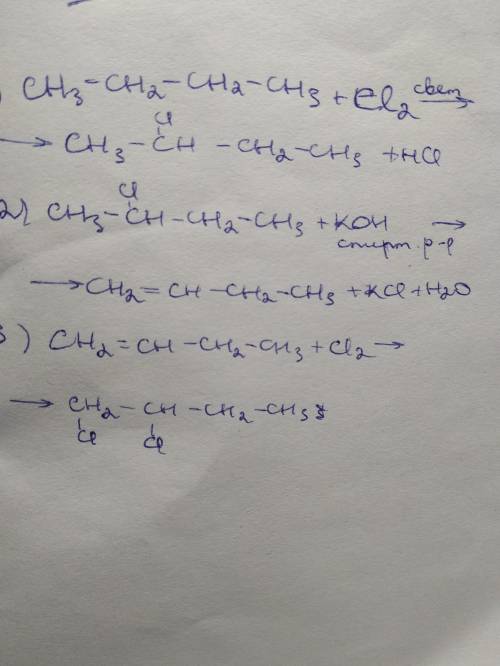 ) CH3-CH2-CH2-CH3 + Cl2 свет →
Cl
→ CH3-CH-CH2-CH3 + HCl
Cl
2) CH3-CH-CH2-CH3 + KOH →
спирт. р-р
→ CH2=CH-CH2-CH3 + KCl + H2O
3) CH2=CH-CH2-CH3 + Cl2 →
→ CH2-CH-CH2-CH3
Cl Cl